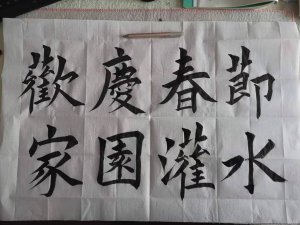 歡慶春節
家園灌水